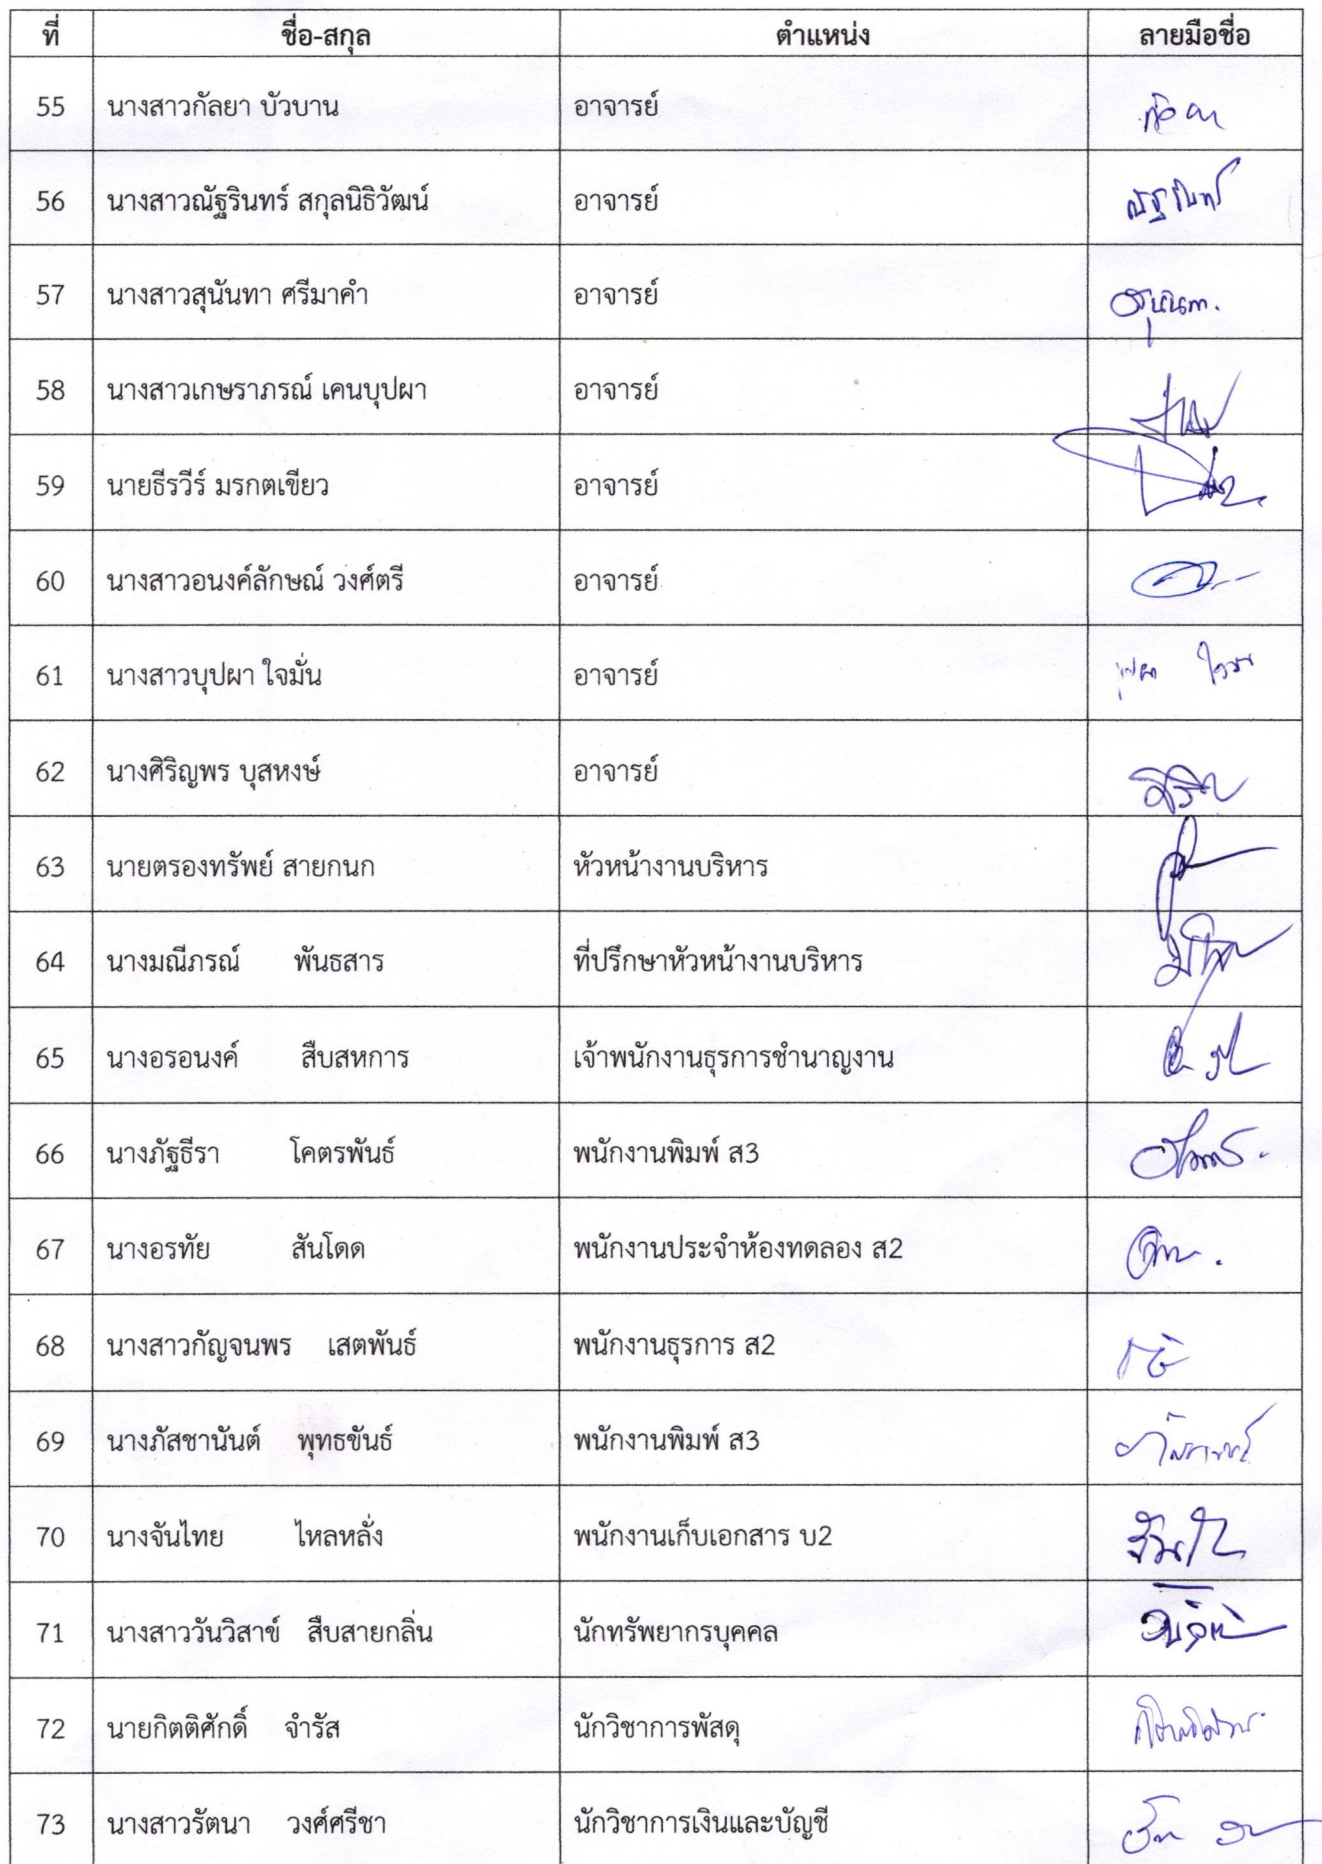 ที่ ชื่อ-สกุล ตำแหน่ง ลายมือชื่อ
55 นางสาวกัลยา บัวบาน อาจารย์
56 นางสาวณัฐรินทร์ สกุลนิธิวัฒน์ อาจารย์ ณัฐรินทร์
57 นางสาวสุนันทา ศรีมาคำ อาจารย์ สุนันทา.
58 นางสาวเกษราภรณ์ เคนบุปผา อาจารย์
59 นายธีรวีร์ มรกตเขียว อาจารย์
60 นางสาวอนงค์ลักษณ์ วงศ์ตรี อาจารย์
61 นางสาวบุปผา ใจมั่น อาจารย์
62 นางศิริญพร บุสหงษ์ อาจารย์
63 นายตรองทรัพย์ สายกนก หัวหน้างานบริหาร
64 นางมณีภรณ์ พันธสาร ที่ปรึกษาหัวหน้างานบริหาร
65 นางอรอนงค์ สืบสหการ เจ้าพนักงานธุรการชำนาญงาน
66 นางภัฐธีรา โคตรพันธ์ พนักงานพิมพ์ ส3
67 นางอรทัย สันโดด พนักงานประจำห้องทดลอง ส2
68 นางสาวกัญจนพร เสตพันธ์ พนักงานธุรการ ส2
69 นางภัสชานันต์ พุทธขันธ์ พนักงานพิมพ์ ส3
70 นางจันไทย ไหลหลั่ง พนักงานเก็บเอกสาร บ2
71 นางสาววันวิสาข์ สืบสายกลิ่น นักทรัพยากรบุคคล
72 นายกิตติศักดิ์ จำรัส นักวิชาการพัสดุ
73 นางสาวรัตนา วงศ์ศรีชา นักวิชาการเงินและบัญชี